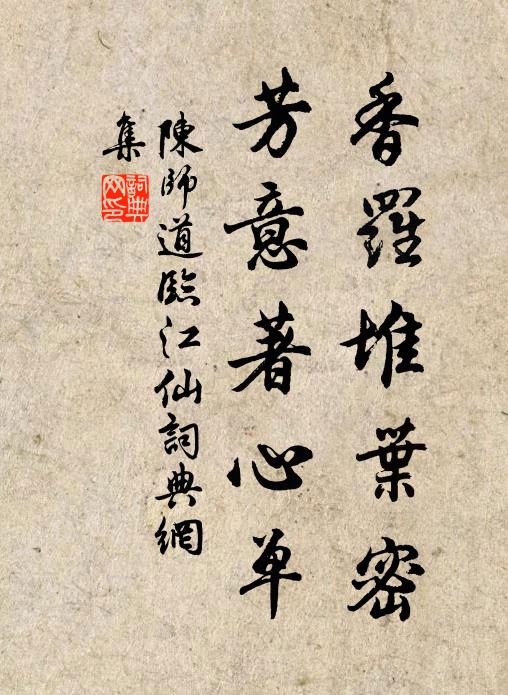 香羅堆葉密
芳意著心單
陳師道臨江仙詞典網
集
詞典
网印